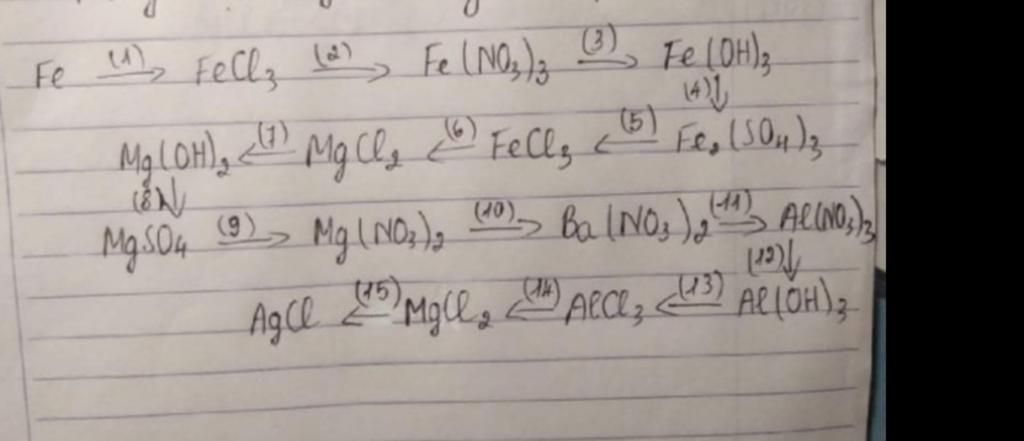 Fe (1)→ FeCl₃ (2)→ Fe(NO₃)₃ (3)→ Fe(OH)₃
(4)↓
Mg(OH)₂ ←(7) MgCl₂ ←(6) FeCl₃ ←(5) Fe₂(SO₄)₃
(8)↓
MgSO₄ (9)→ Mg(NO₃)₂ (10)→ Ba(NO₃)₂ (11)→ Al(NO₃)₃
(12)↓
AgCl ←(15) MgCl₂ ←(14) AlCl₃ ←(13) Al(OH)₃